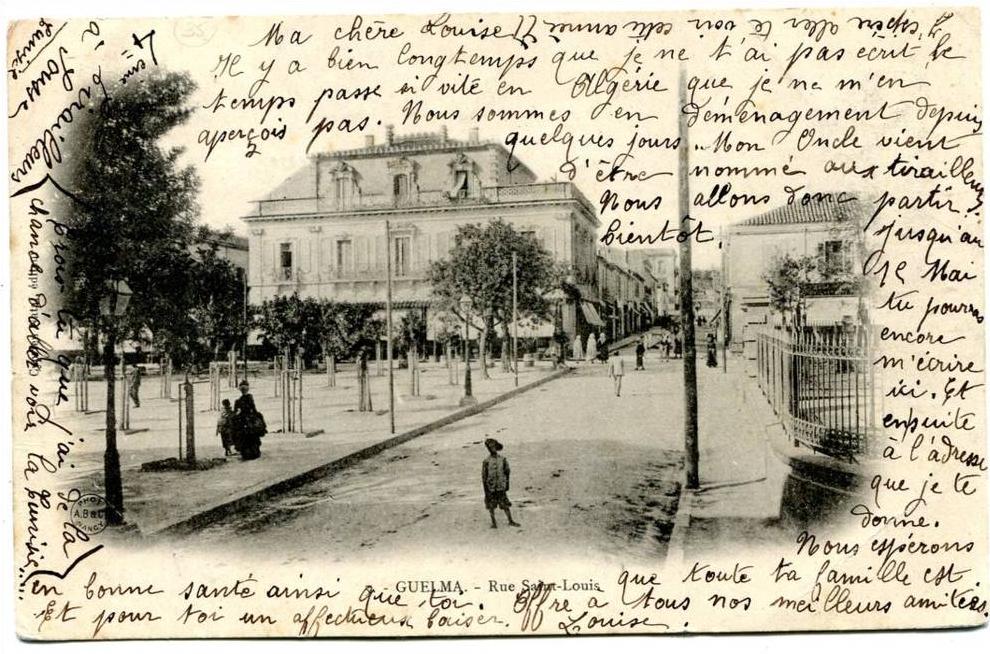 35
Ma chère Louise,
Il y a bien longtemps que je ne t'ai pas écrit le
temps passe si vite en Algérie que je ne m'en
aperçois pas. Nous sommes en déménagement depuis
quelques jours. Mon Oncle vient
d'être nommé aux tirailleurs
Nous allons donc partir
bientôt.
jusqu'au
12 Mai
tu pourras
encore
m'écrire
ici. Et
ensuite
à l'adresse
que je te
donne.
Nous espérons
que toute ta famille est
en bonne santé ainsi que toi. Offre à tous nos meilleurs amitiés.
Et pour toi un affectueux baiser. Louise.
4eme tirailleurs
à Sousse
Tunisie
crois tu que j'ai de la
chance d'aller voir la Tunisie....
J'espère aller te voir cette année !!
GUELMA. - Rue Saint-Louis
PHOT
A.B & C
NANCY